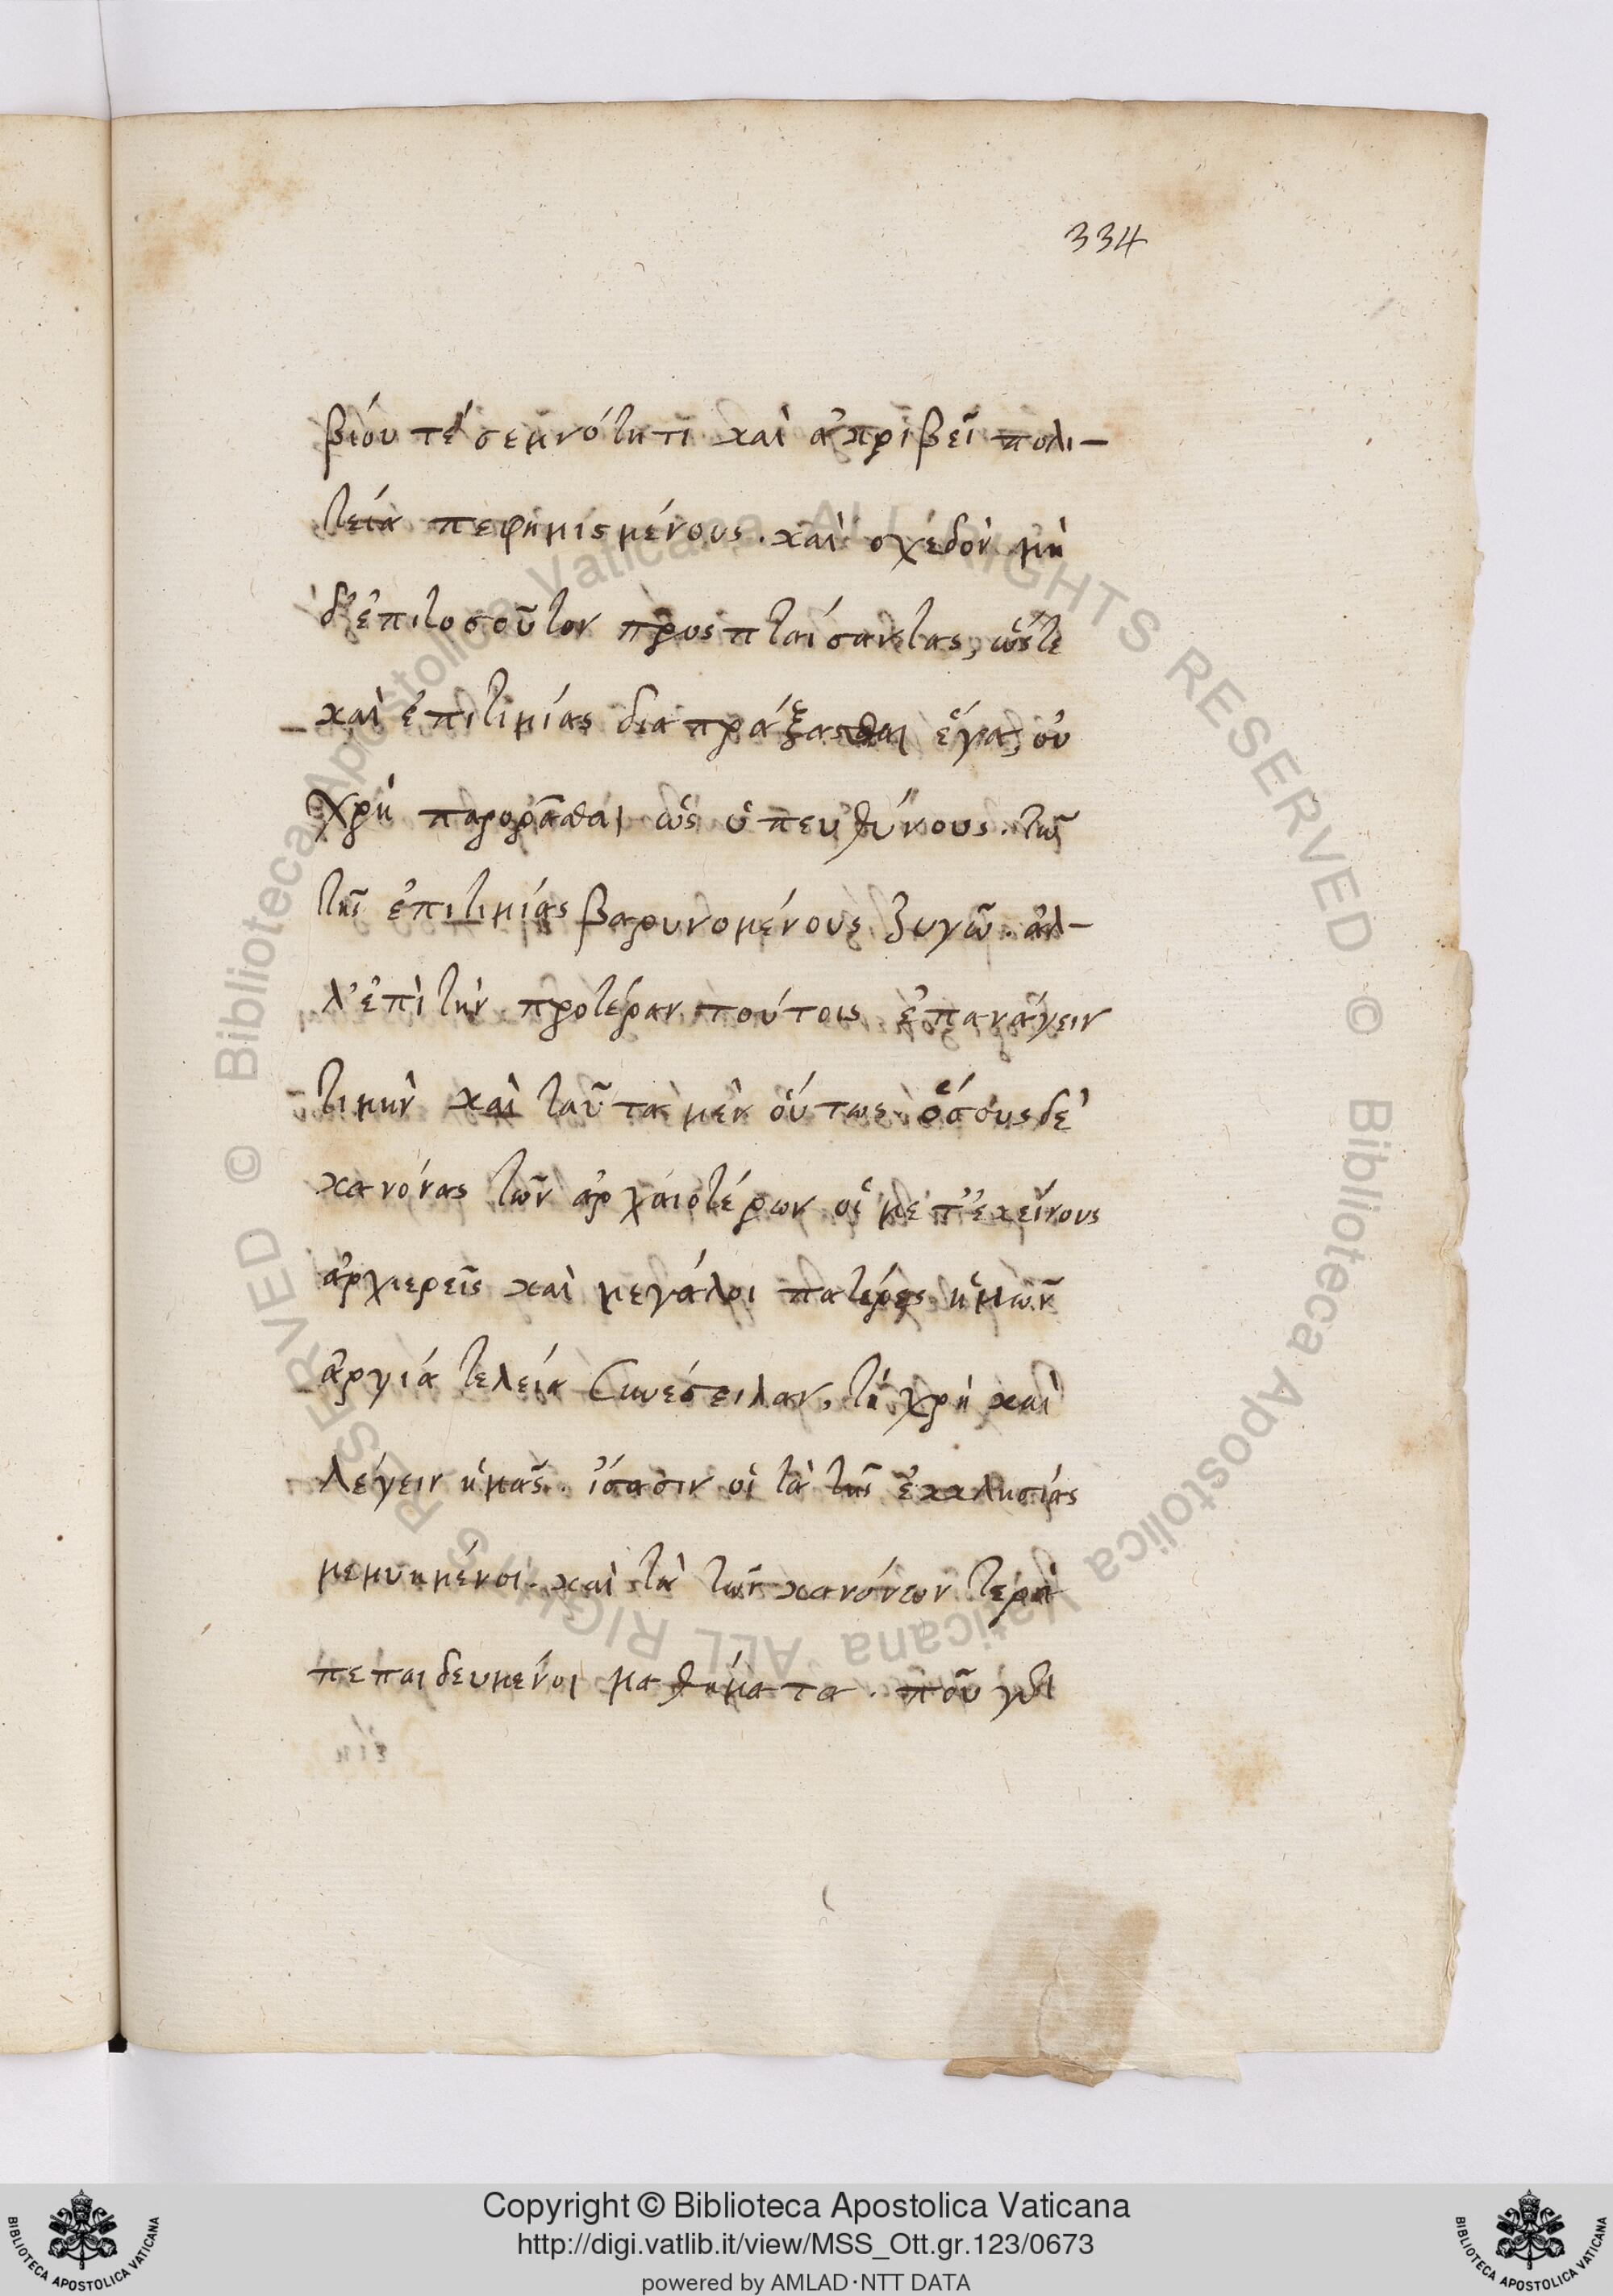 334
βίου τέ σεμνότητι καὶ ἀκριβεῖ πολι-
τεία πεφημισμένους. καὶ σχεδὸν μὴ
δ' ἐπιτοσοῦτον προσπταίσαντας, ὥστε
καὶ ἐπιτιμίας διαπράξασθαι
χρὴ παρορᾶσθαι ὡς ὑπευθύνους. τῶ
τῆς ἐπιτιμίας βαρυνομένους ζυγῶ. ἀλ-
λ' ἐπὶ τὴν προτέραν τούτοις ἐπανάγειν
τιμήν καὶ ταῦτα μὲν οὕτως ὅσους δὲ
κανόνας τῶν ἀρχαιοτέρων οἱ μετ' ἐκείνους
ἀρχιερεῖς καὶ μεγάλοι πατέρες ἡμῶν
ἀργιά τελεία συνέστειλαν, τί χρὴ καὶ
λέγειν ἡμᾶς. ἴσασιν οἱ τὰ τῆς ἐκκλησίας
μεμυημένοι. καὶ τὰ τῶν κανόνων
πεπαιδευμένοι μαθήματα. ποῦ
Copyright © Biblioteca Apostolica Vaticana
http://digi.vatlib.it/view/MSS_Ott.gr.123/0673
powered by AMLAD·NTT DATA
BIBLIOTECA APOSTOLICA VATICANA
BIBLIOTECA APOSTOLICA VATICANA
© Biblioteca Apostolica Vaticana ALL RIGHTS RESERVED
© Biblioteca Apostolica Vaticana ALL RIGHTS RESERVED